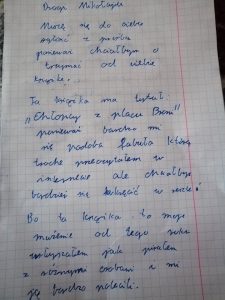 Drogi Mikołajku
Muszę się do ciebie
zgłosić z prośbą
ponieważ chciałbym o
trzymać od ciebie
książkę...
Ta książka ma tytuł.
"Chłopcy z placu Broni"
ponieważ bardzo mi
się podoba fabuła którą
trochę przeczytałem w
internecie ale chciałbym
bardziej się
Bo ta książka to moje
marzenie od tego roku
usłyszałem jak pisałem
z różnymi osobami i mi
ją bardzo polecili.